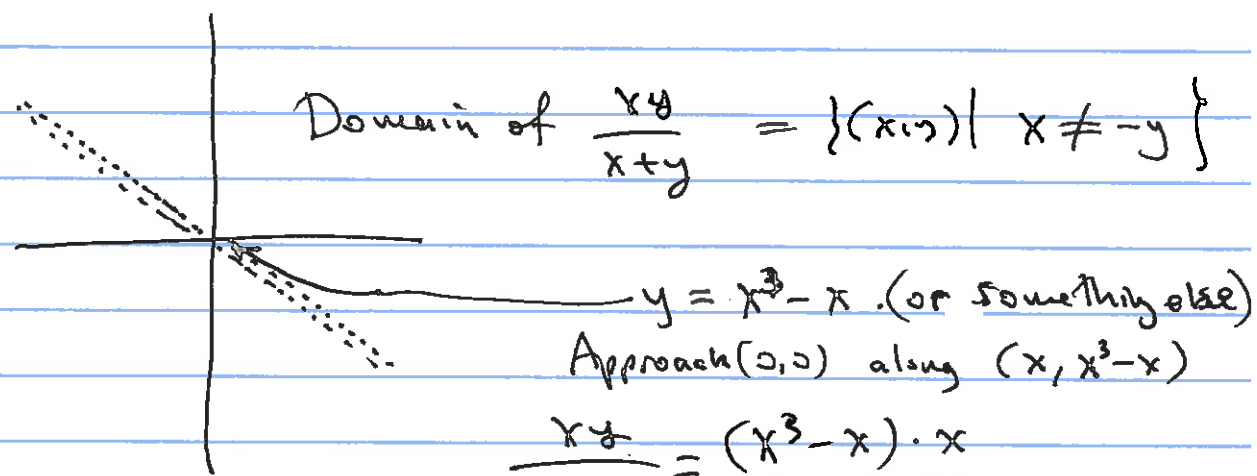 Domain of xy/(x+y) = {(x,y)| x ≠ -y}
y = x³ - x . (or something else)
Approach (0,0) along (x, x³-x)
xy = (x³ - x) · x